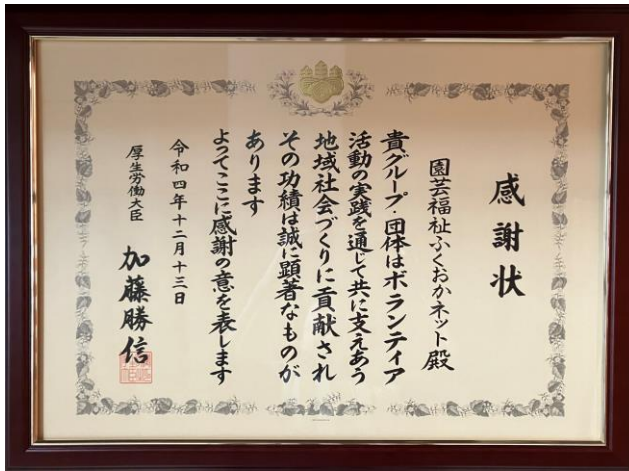 感謝状
園芸福祉ふくおかネット殿
貴グループ・団体はボランティア
活動の実践を通じて共に支えあう
地域社会づくりに貢献され
その功績は誠に顕著なものが
あります
よってここに感謝の意を表します
令和四年十二月十三日
厚生労働大臣
加藤勝信